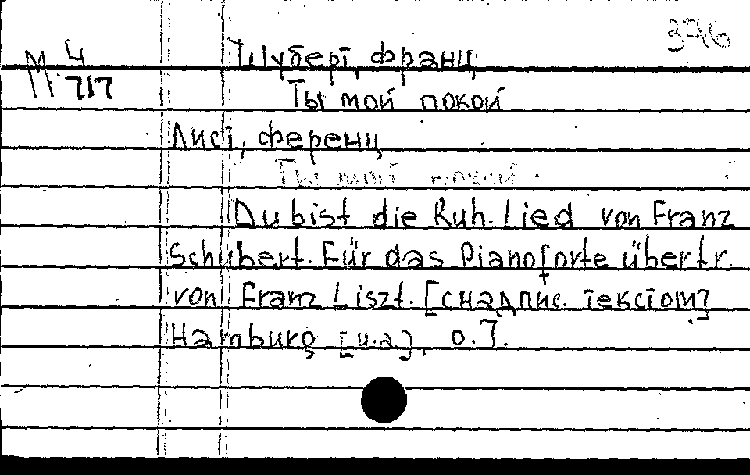 376
М 4
717
Шуберт, франц
Ты мой покой
Лист, ференц
Ты мой покой
Du bist die Ruh. Lied von Franz
Schubert. Für das Pianoforte übertr.
von Franz Liszt. [снадпис. текстом]
Hamburg [u.a.], o.J.